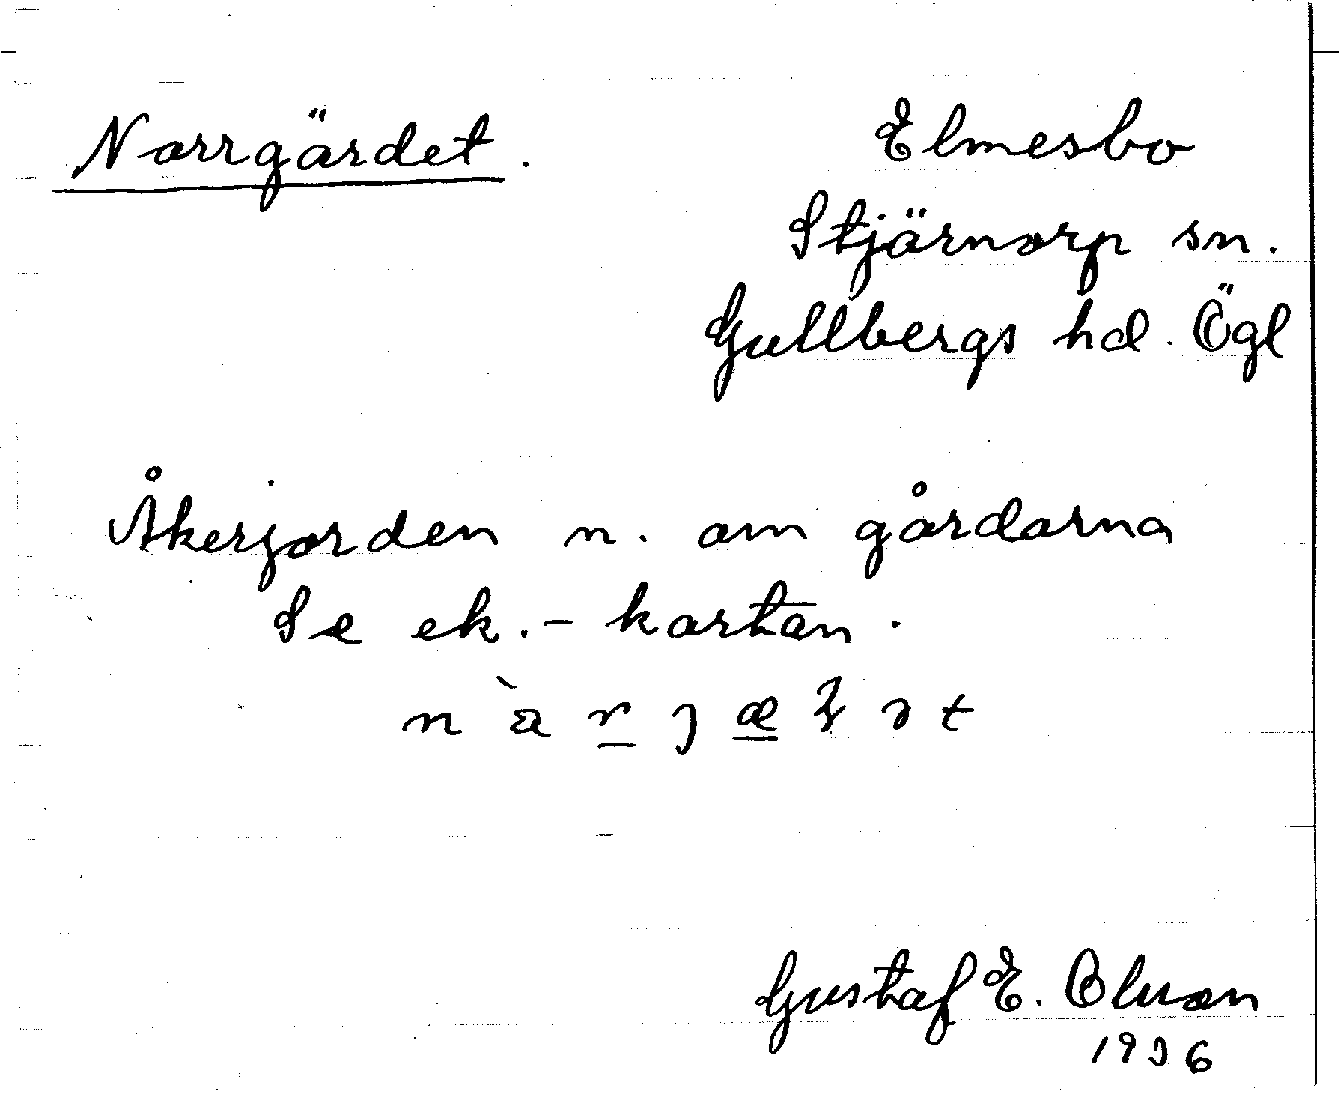 Norrgärdet.
Elmesbo
Stjärnorp sn.
Gullbergs hd. Ögl
Åkerjorden n. om gårdarna
Se ek.-kartan.
Gustaf E. Olson
1936